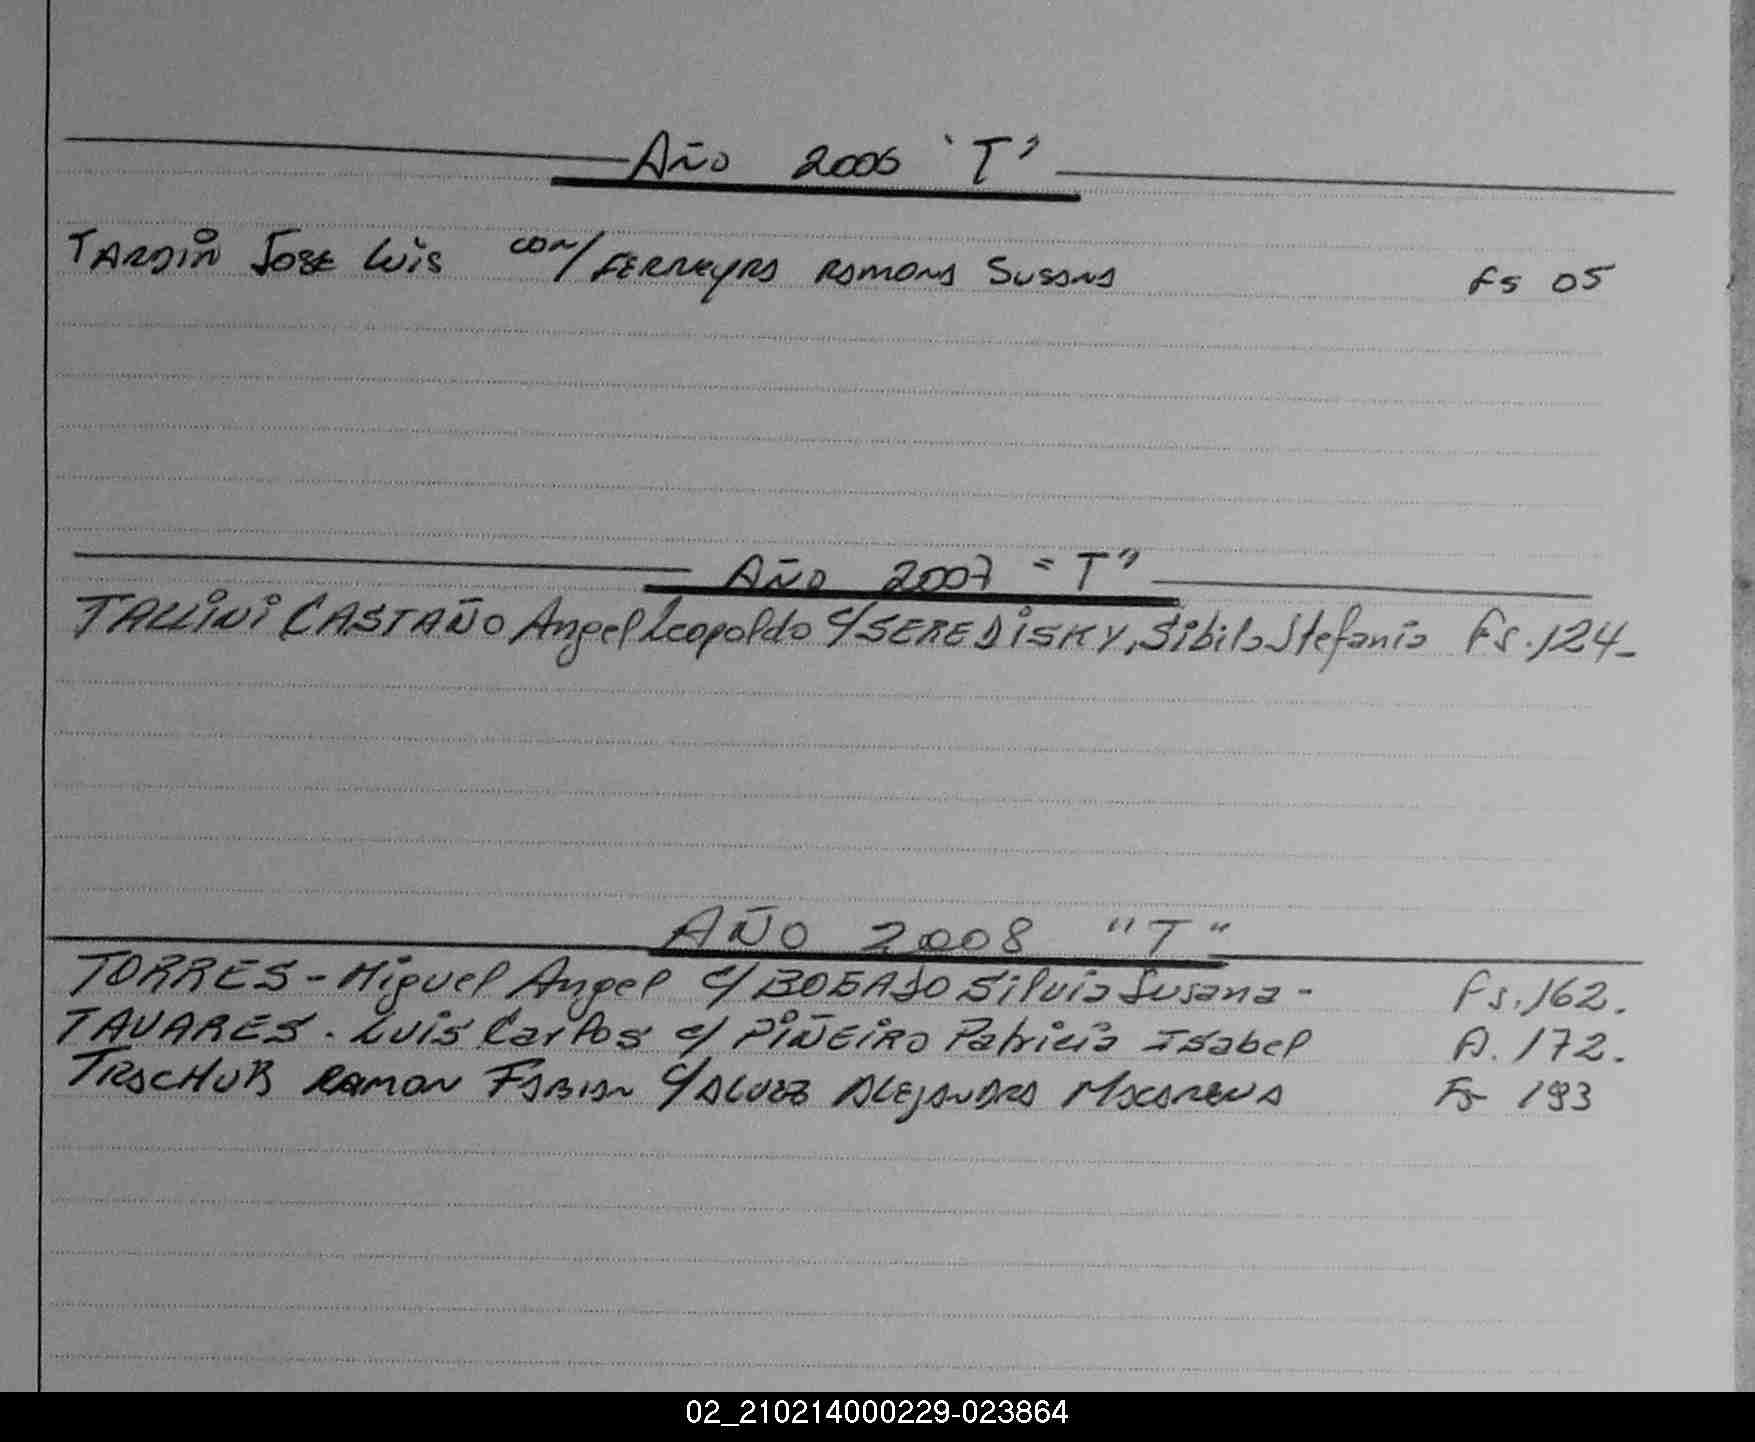 Año 2006 "T"
TARDIN JOSE LUIS con/ FERREYRA RAMONA SUSANA fs 05
AÑO 2007 "T"
TALLINI CASTAÑO Angel Leopoldo c/ SEREDISKY, Sibila Stefania Fs. 124-
AÑO 2008 "T"
TORRES - Miguel Angel c/ BOGADO Silvia Susana - Fs. 162.
TAVARES - Luis Carlos c/ PIÑEIRO Patricia Isabel 172.
RAMON FABIAN c/ ALEJANDRA MACARENA Fs 193
02_210214000229-023864